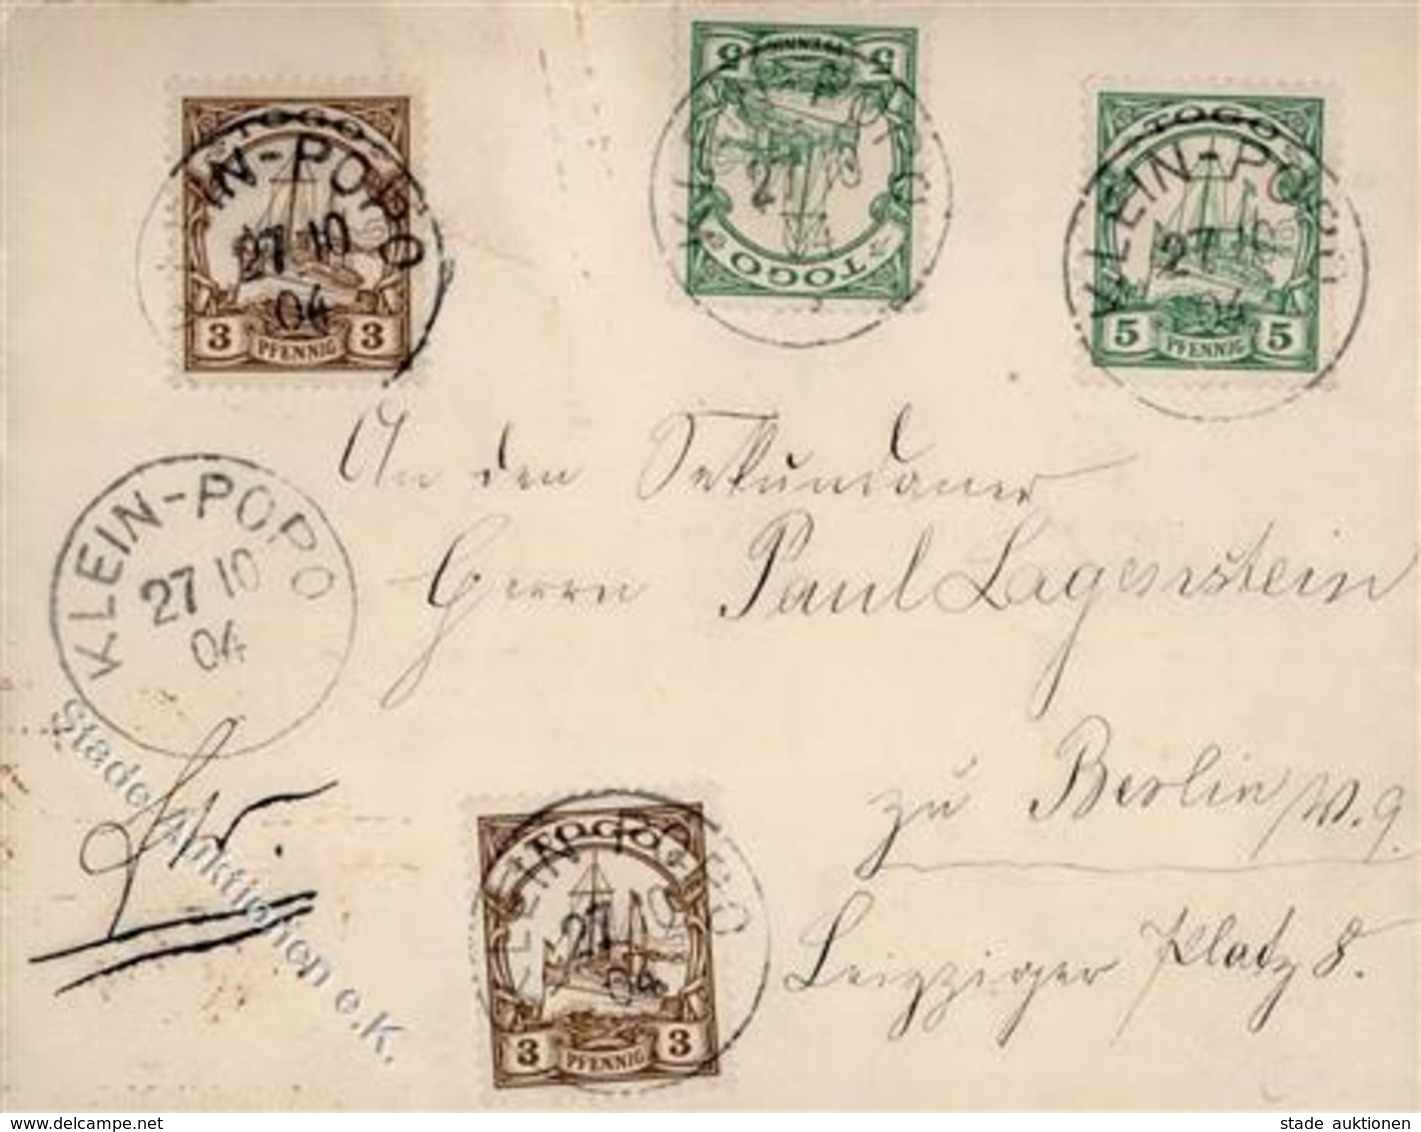 TOGO
IN-POPO
27 10
04
3 PFENNIG 3
5 PFENNIG 5
27 10
04
TOGO
TOGO
KLEIN-POPO
27 10
04
5 PFENNIG 5
An den Sekundaner
Herrn Paul Lagenstein
KLEIN-POPO
27 10
04
zu Berlin W. 9.
Leipziger Platz 8.
TOGO
LEIN-POPO
27 10
04
3 PFENNIG 3
Stade Auktionen e.K.
www.delcampe.net
stade auktionen